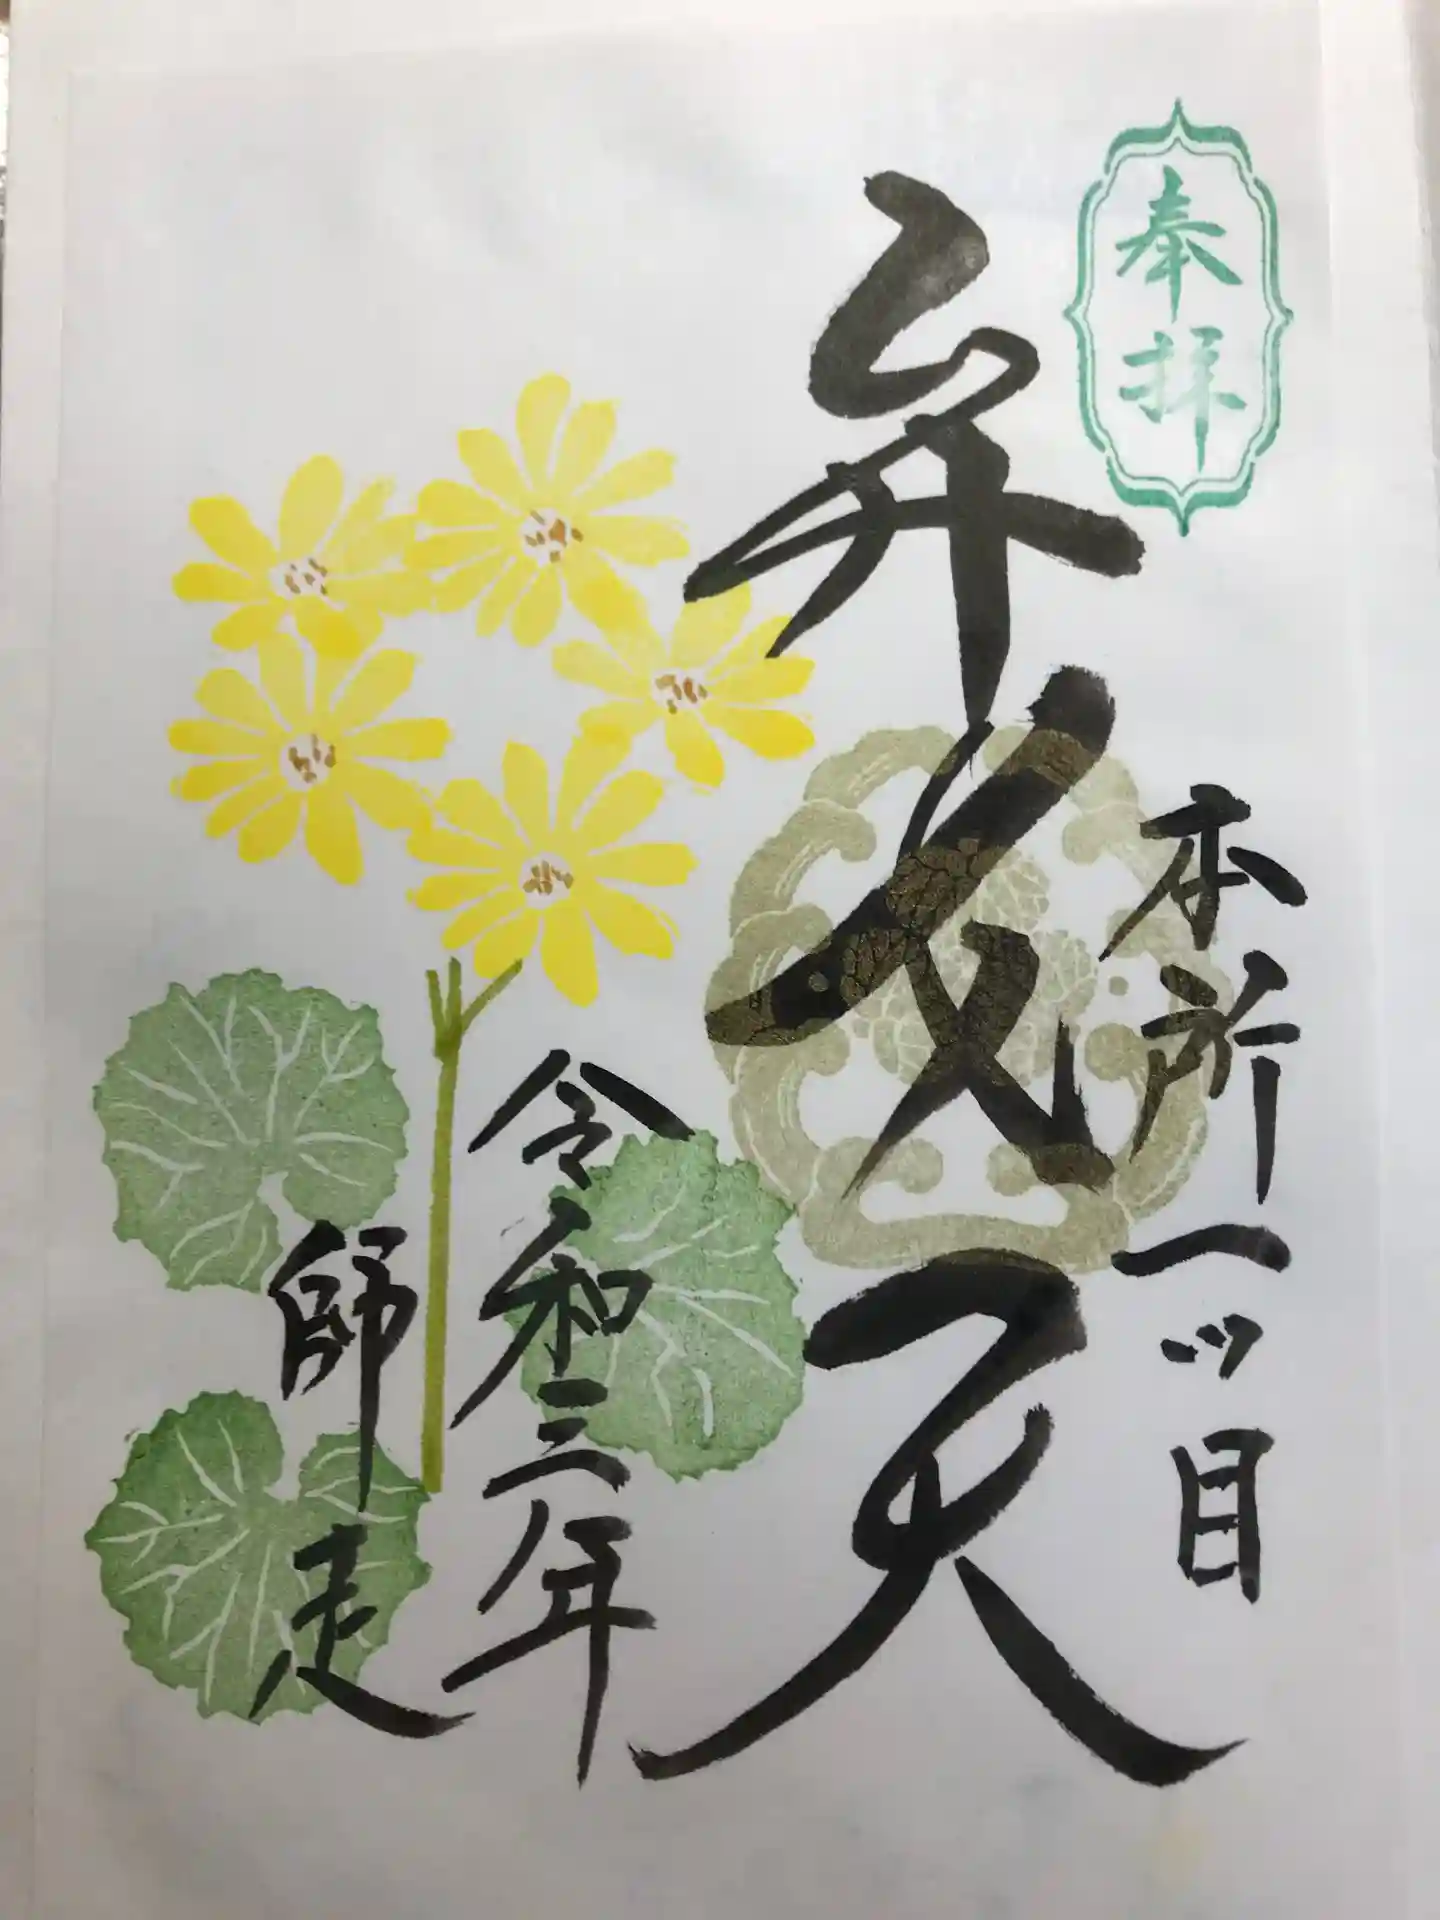 奉拝
本所一ッ目
弁才天
令和三年
師走